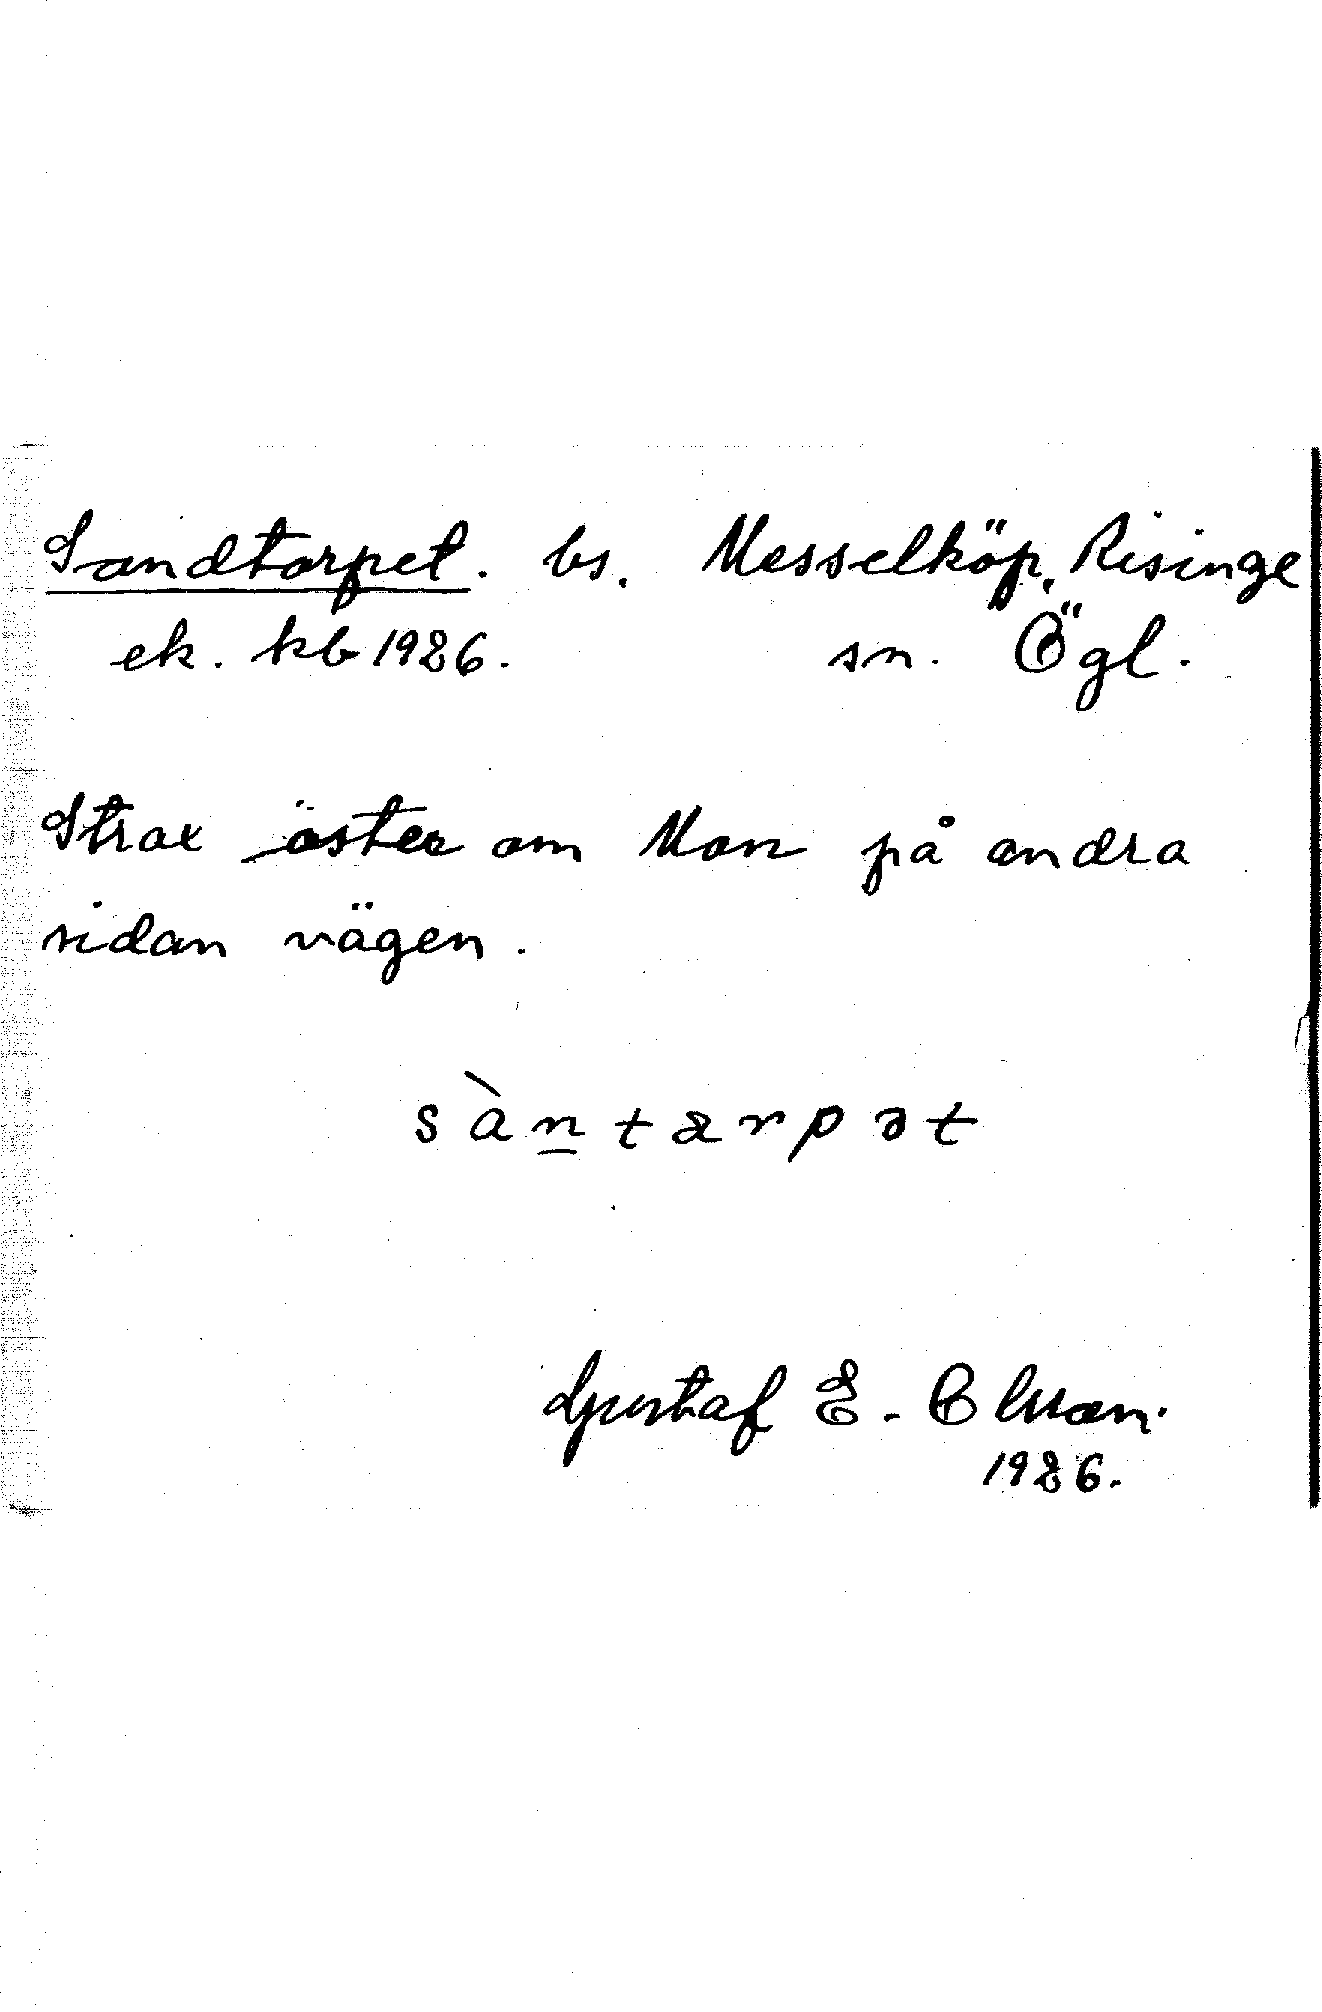 Sandtorpet. bs. Messelköp, Risinge
ek. kb 1926. sn. Ögl.
Strax öster om Mon på andra
sidan vägen.
sàntarpət
Gustaf E. Olsson.
1926.